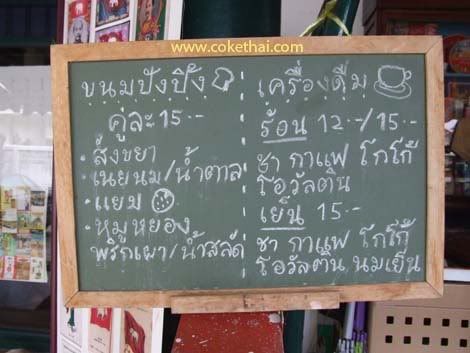 www.cokethai.com
ขนมปังปิ้ง
คู่ละ 15.-
• สังขยา
• เนยนม/น้ำตาล
• แยม
• หมูหยอง
พริกเผา/น้ำสลัด
เครื่องดื่ม
ร้อน 12.-/15.-
ชา กาแฟ โกโก้
โอวัลติน
เย็น 15.-
ชา กาแฟ โกโก้
โอวัลติน นมเย็น